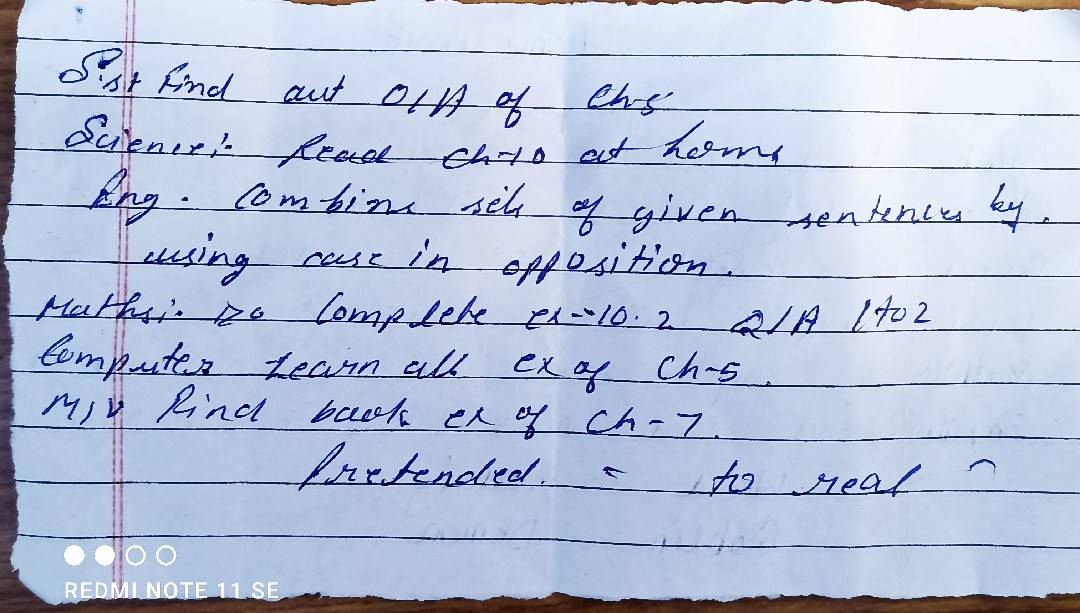 S.st Find out Q/A of Ch-5
Science:- Read Ch-10 at home
Eng. Combine sets of given sentences by.
using case in opposition.
Maths:- Do Complete ex-10.2 Q/A 1 to 2
Computer Learn all ex of Ch-5.
M/V Find back ex of Ch-7.
Pretended. = to real
REDMI NOTE 11 SE